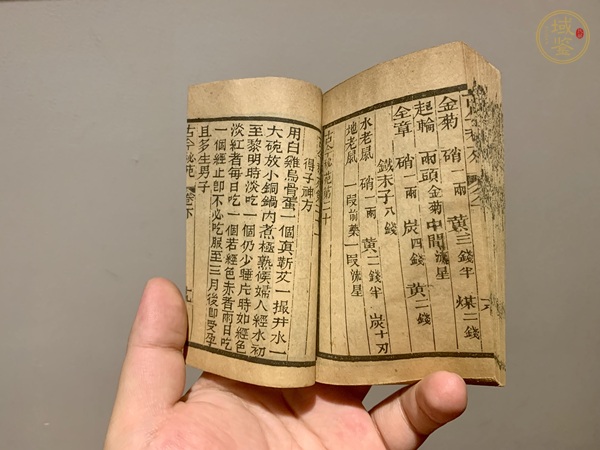 金菊 硝一兩 黃三錢半 煤二錢
起輪 兩頭金菊中間流星
全章 硝一兩 炭四錢 黃二錢
鐵末子八錢
水老鼠 硝一兩 黃二錢半 炭十刃
地老鼠 一段前藥一段流星
古今秘苑第二十
得子神方
用白雞烏骨蛋一個真蘄艾一撮井水一
大碗放小銅鍋內煮極熟候婦人經水初
至黎明時淡吃一個仍少睡片時如經色
淡紅者每日吃一個若經色赤者兩日吃
一個經止即不必吃服至三月後即受孕
且多生男子
古今秘苑 卷下
域鉴